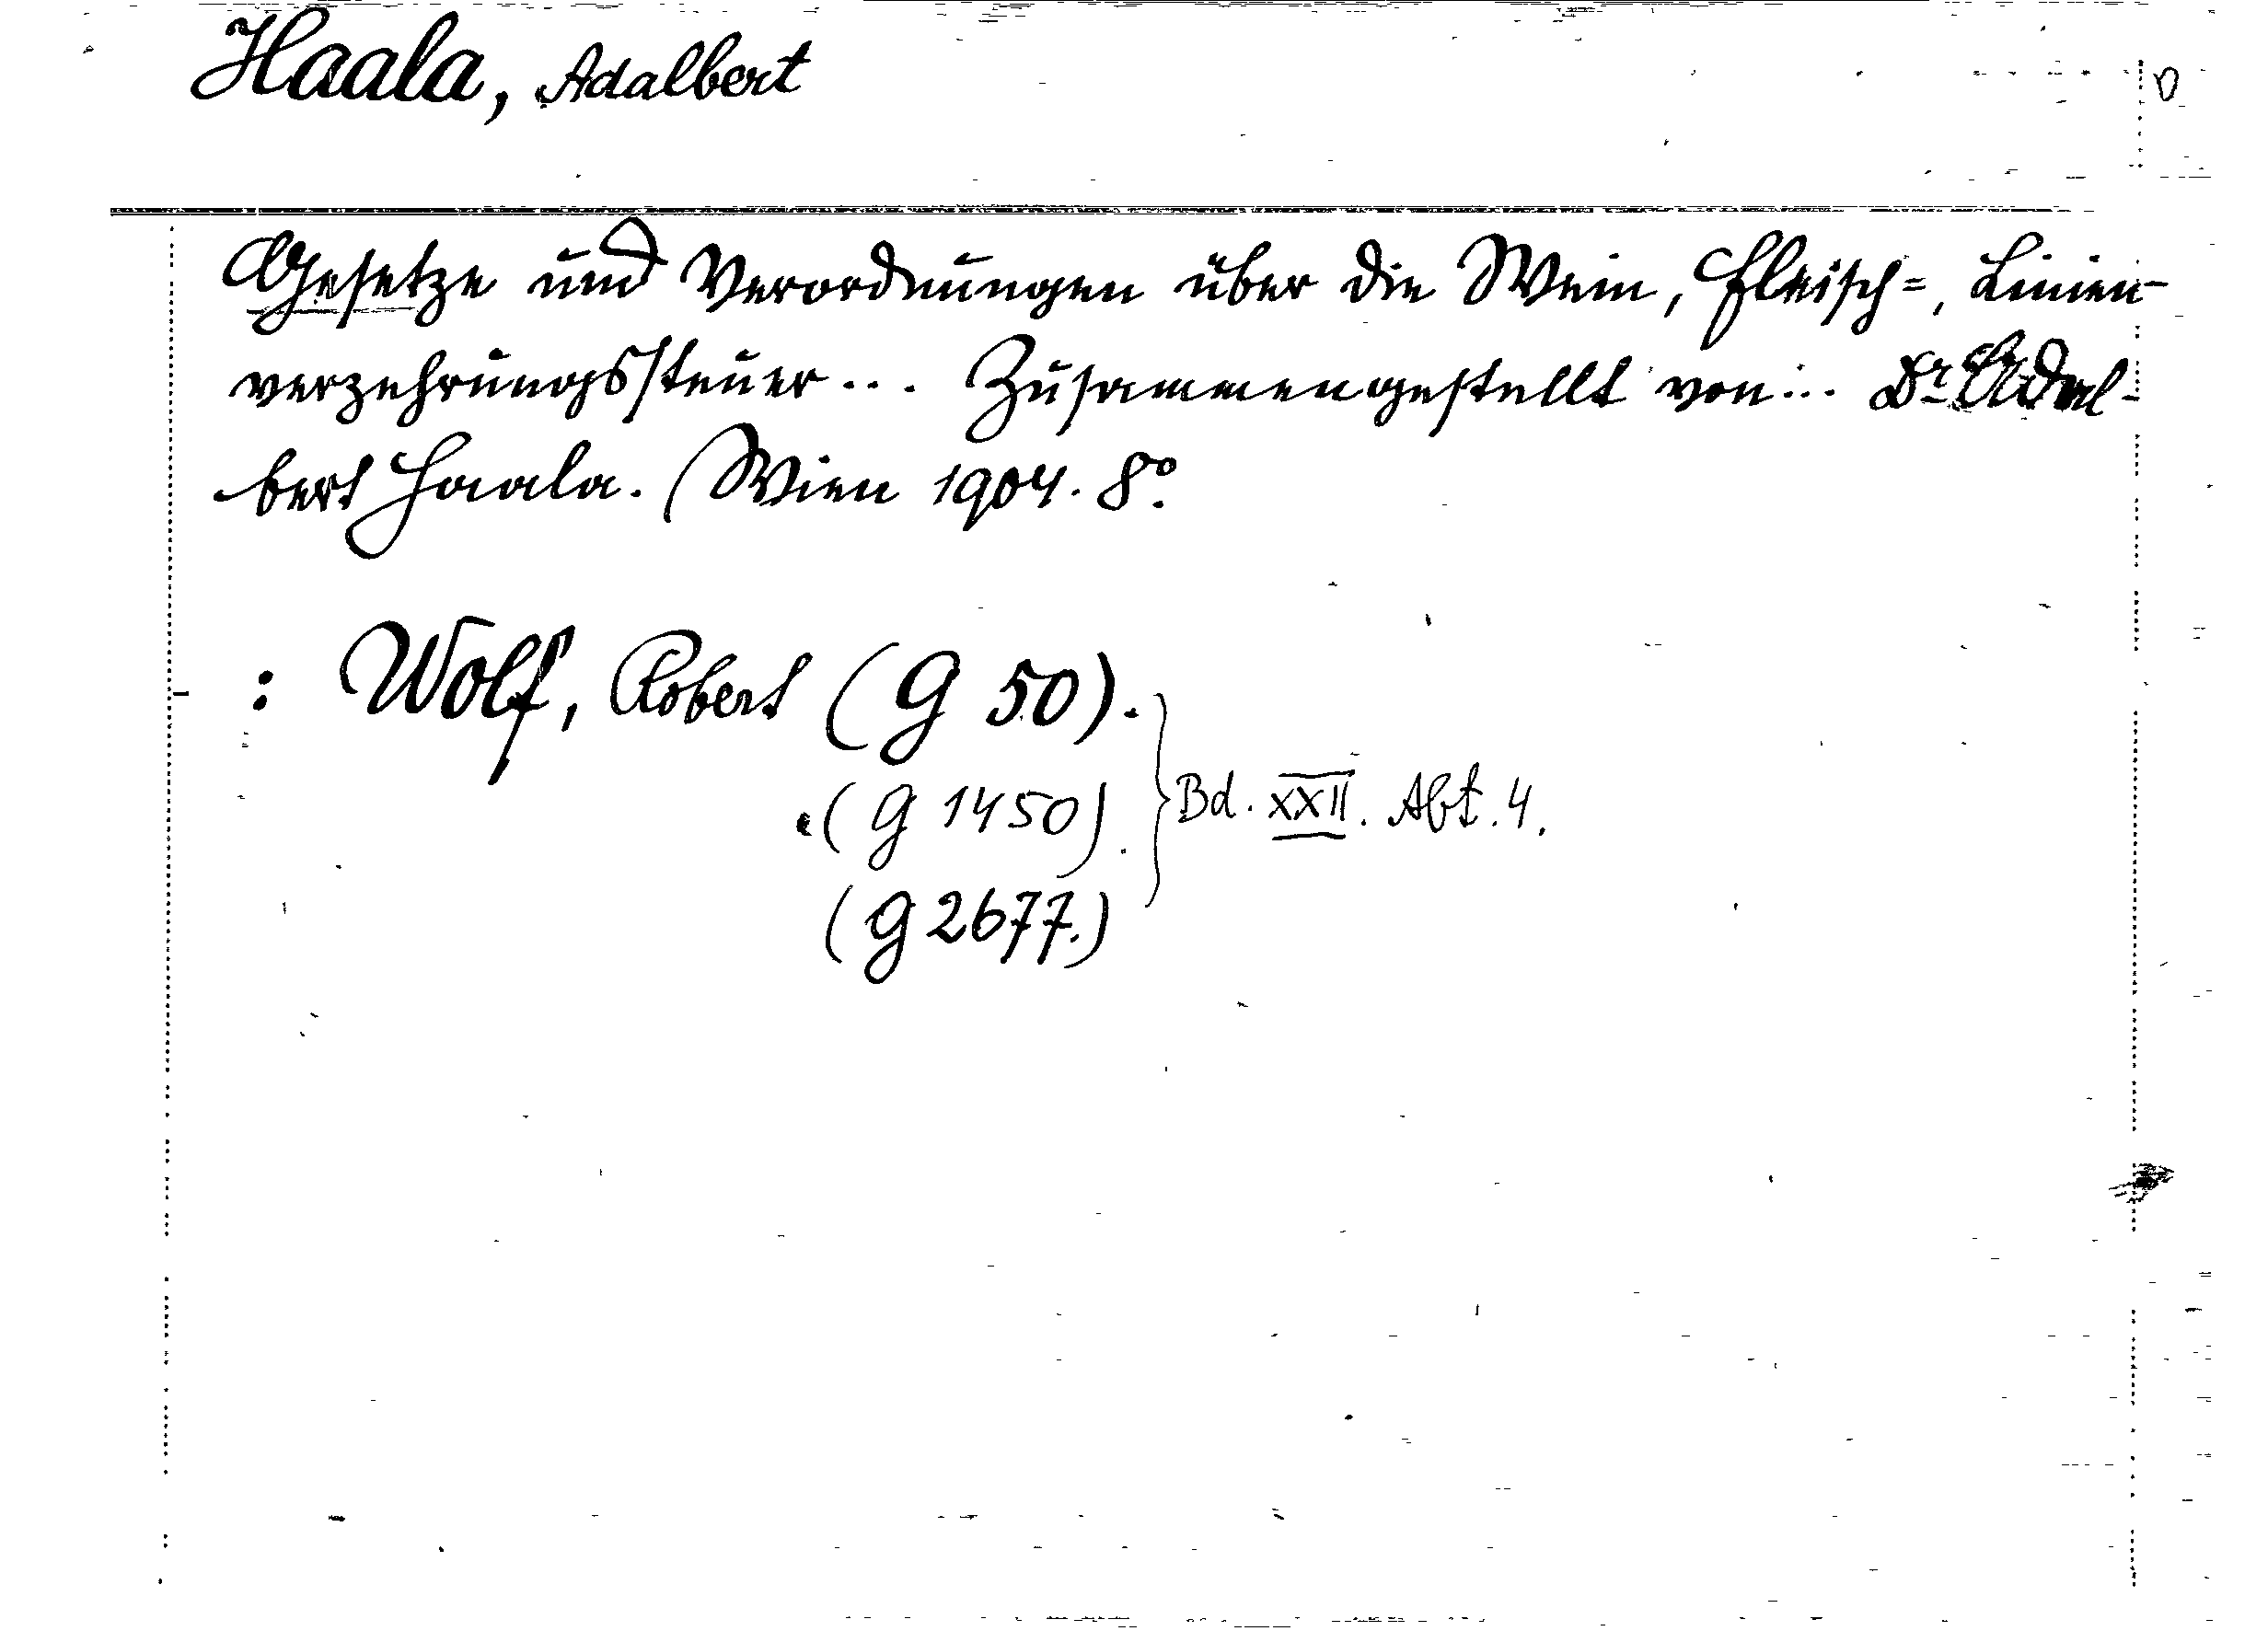 Haala, Adalbert
Gesetze und Verordnungen über die Wein, Fleisch=, Linien-
verzehrungssteuer... Zusammengestellt von... Dr. Adal-
bert Haala. (Wien 1904. 8°.
: Wolf, Robert (G 50).
(G 1450).
Bd. XXII. Abt. 4.
(G 2677.)